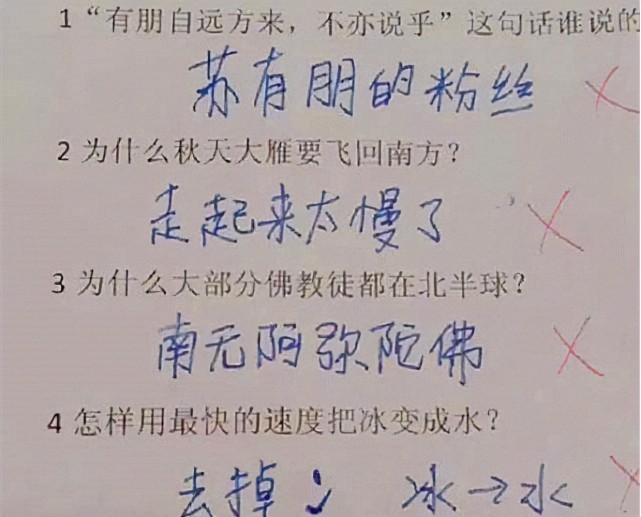 1“有朋自远方来，不亦说乎”这句话谁说的
苏有朋的粉丝
2 为什么秋天大雁要飞回南方？
走起来太慢了
3 为什么大部分佛教徒都在北半球？
南无阿弥陀佛
4 怎样用最快的速度把冰变成水？
去掉冫 冰→水